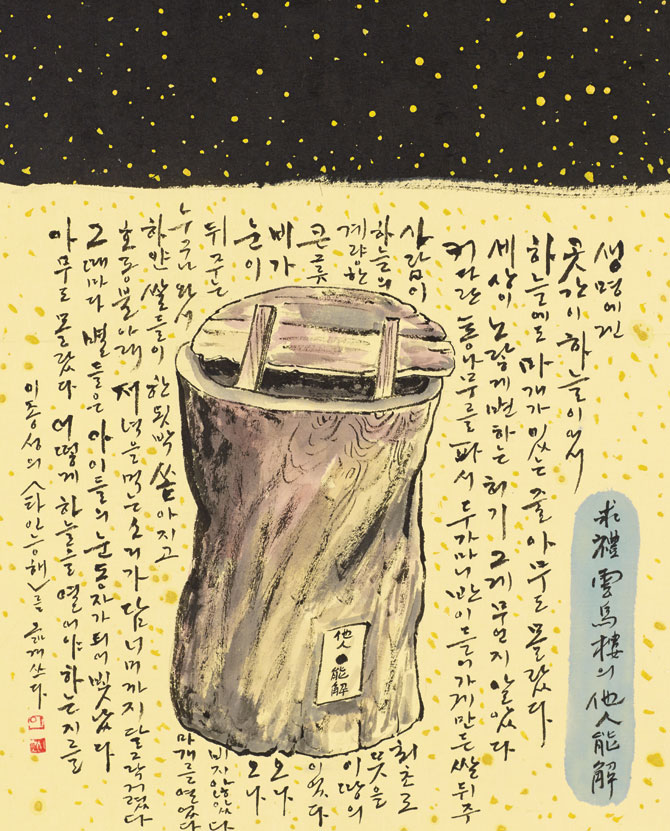 생명에겐
곳간이 하늘이어서
하늘에도 마개가 있는 줄 아무도 몰랐다
세상이 노랗게 변하는 허기 그게 무언지 알았다
커다란 통나무를 파서 두 가마니 반이 들어가게 만든 쌀뒤주
사람이 최초로
하늘의 뜻을
계량한 이 땅의
큰 그릇이었다
비가 오나
눈이 오나
뒤주는 비지 않았다
누구나 와서 마개를 열었다
하얀 쌀들이 한 됫박 쏟아지고
호롱불 아래 저녁을 먹는 소리가 담 너머까지 달그락거렸다
그때마다 별들은 아이들의 눈동자가 되어 빛났다
아무도 몰랐다 어떻게 하늘을 열어야 하는지를
이종성의 <타인능해>를 옮겨 쓰다
求禮 雲鳥樓의 他人能解
他人
能解